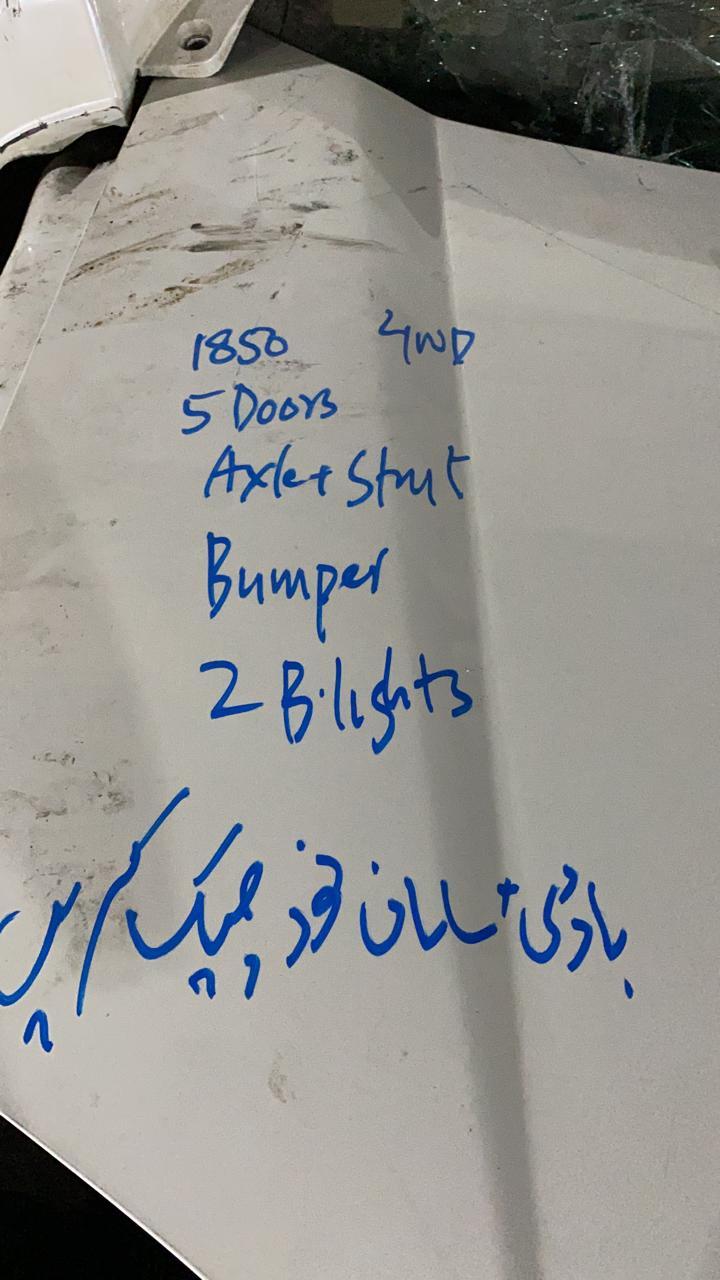 1850 4WD
5 Doors
Axle + Strut
Bumper
2 B.lights
باڈی + سامان خود چیک کریں